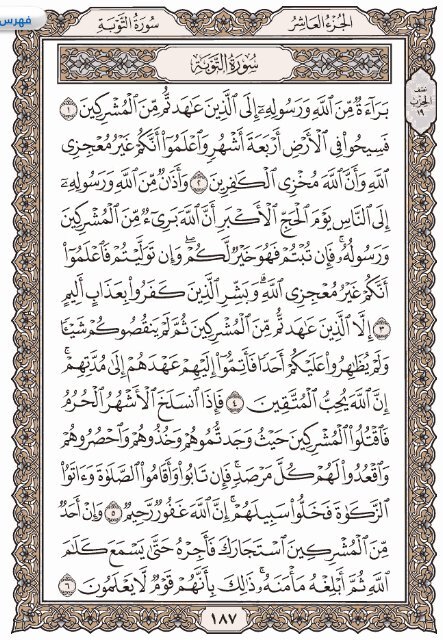 فهرس
سُورَةُ التَّوْبَةِ
الجُزْءُ العَاشِرُ
سُورَةُ التَّوْبَةِ
بَرَآءَةٌ مِّنَ ٱللَّهِ وَرَسُولِهِۦٓ إِلَى ٱلَّذِينَ عَٰهَدتُّم مِّنَ ٱلْمُشْرِكِينَ ١
فَسِيحُوا۟ فِى ٱلْأَرْضِ أَرْبَعَةَ أَشْهُرٍ وَٱعْلَمُوٓا۟ أَنَّكُمْ غَيْرُ مُعْجِزِى
ٱللَّهِ وَأَنَّ ٱللَّهَ مُخْزِى ٱلْكَٰفِرِينَ ٢ وَأَذَٰنٌ مِّنَ ٱللَّهِ وَرَسُولِهِۦٓ
إِلَى ٱلنَّاسِ يَوْمَ ٱلْحَجِّ ٱلْأَكْبَرِ أَنَّ ٱللَّهَ بَرِىٓءٌ مِّنَ ٱلْمُشْرِكِينَ
وَرَسُولُهُۥ ۚ فَإِن تُبْتُمْ فَهُوَ خَيْرٌ لَّكُمْ ۖ وَإِن تَوَلَّيْتُمْ فَٱعْلَمُوٓا۟
أَنَّكُمْ غَيْرُ مُعْجِزِى ٱللَّهِ ۗ وَبَشِّرِ ٱلَّذِينَ كَفَرُوا۟ بِعَذَابٍ أَلِيمٍ
٣ إِلَّا ٱلَّذِينَ عَٰهَدتُّم مِّنَ ٱلْمُشْرِكِينَ ثُمَّ لَمْ يَنقُصُوكُمْ شَيْـًٔا
وَلَمْ يُظَٰهِرُوا۟ عَلَيْكُمْ أَحَدًا فَأَتِمُّوٓا۟ إِلَيْهِمْ عَهْدَهُمْ إِلَىٰ مُدَّتِهِمْ ۚ
إِنَّ ٱللَّهَ يُحِبُّ ٱلْمُتَّقِينَ ٤ فَإِذَا ٱنسَلَخَ ٱلْأَشْهُرُ ٱلْحُرُمُ
فَٱقْتُلُوا۟ ٱلْمُشْرِكِينَ حَيْثُ وَجَدتُّمُوهُمْ وَخُذُوهُمْ وَٱحْصُرُوهُمْ
وَٱقْعُدُوا۟ لَهُمْ كُلَّ مَرْصَدٍ ۚ فَإِن تَابُوا۟ وَأَقَامُوا۟ ٱلصَّلَوٰةَ وَءَاتَوُا۟
ٱلزَّكَوٰةَ فَخَلُّوا۟ سَبِيلَهُمْ ۚ إِنَّ ٱللَّهَ غَفُورٌ رَّحِيمٌ ٥ وَإِنْ أَحَدٌ
مِّنَ ٱلْمُشْرِكِينَ ٱسْتَجَارَكَ فَأَجِرْهُ حَتَّىٰ يَسْمَعَ كَلَٰمَ
ٱللَّهِ ثُمَّ أَبْلِغْهُ مَأْمَنَهُۥ ۚ ذَٰلِكَ بِأَنَّهُمْ قَوْمٌ لَّا يَعْلَمُونَ ٦
نصف
الحزب
١٩
١٨٧